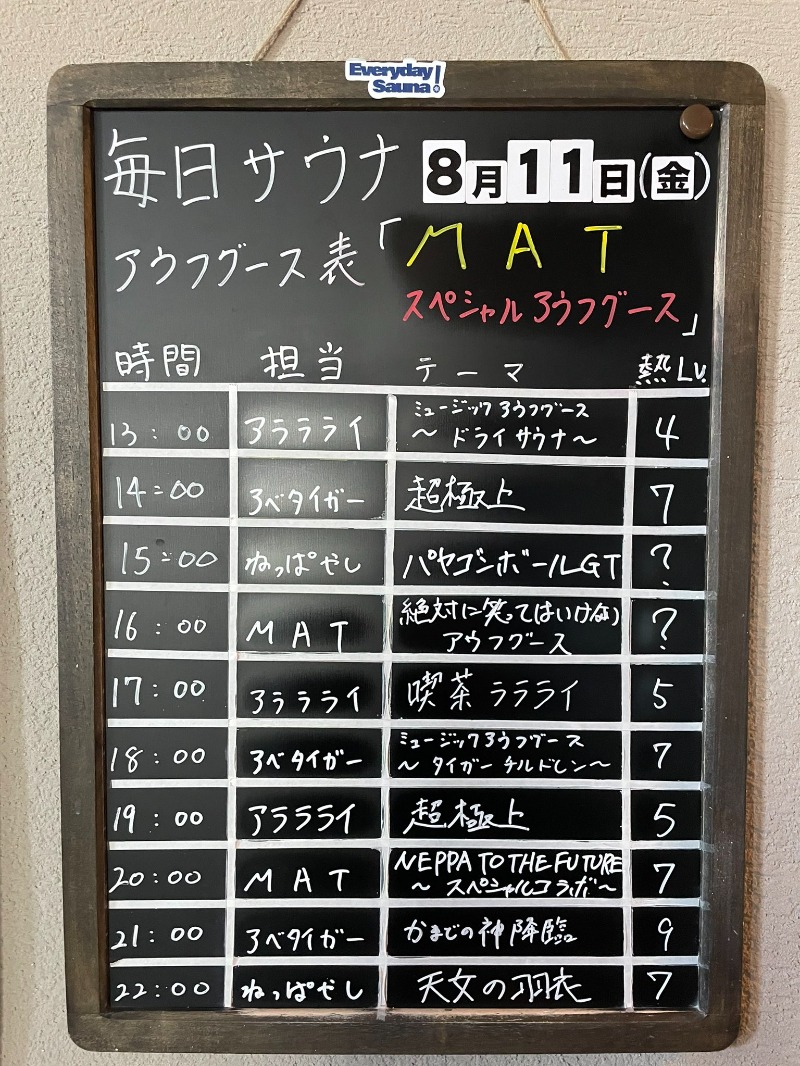 Everyday
Sauna!
毎日サウナ 8月11日(金)
アウフグース表「MAT
スペシャルアウフグース」
時間 担当 テーマ 熱Lv.
13:00 アララライ ミュージックアウフグース
～ドライサウナ～ 4
14:00 アベタイガー 超極上 7
15:00 ねっぱやし パヤゴンボールGT ?
16:00 MAT 絶対に笑ってはいけない
アウフグース ?
17:00 アララライ 喫茶ラララライ 5
18:00 アベタイガー ミュージックアウフグース
～タイガーチルドレン～ 7
19:00 アララライ 超極上 5
20:00 MAT NEPPA TO THE FUTURE
～スペシャルコラボ～ 7
21:00 アベタイガー かまどの神降臨 9
22:00 ねっぱやし 天女の羽衣 7